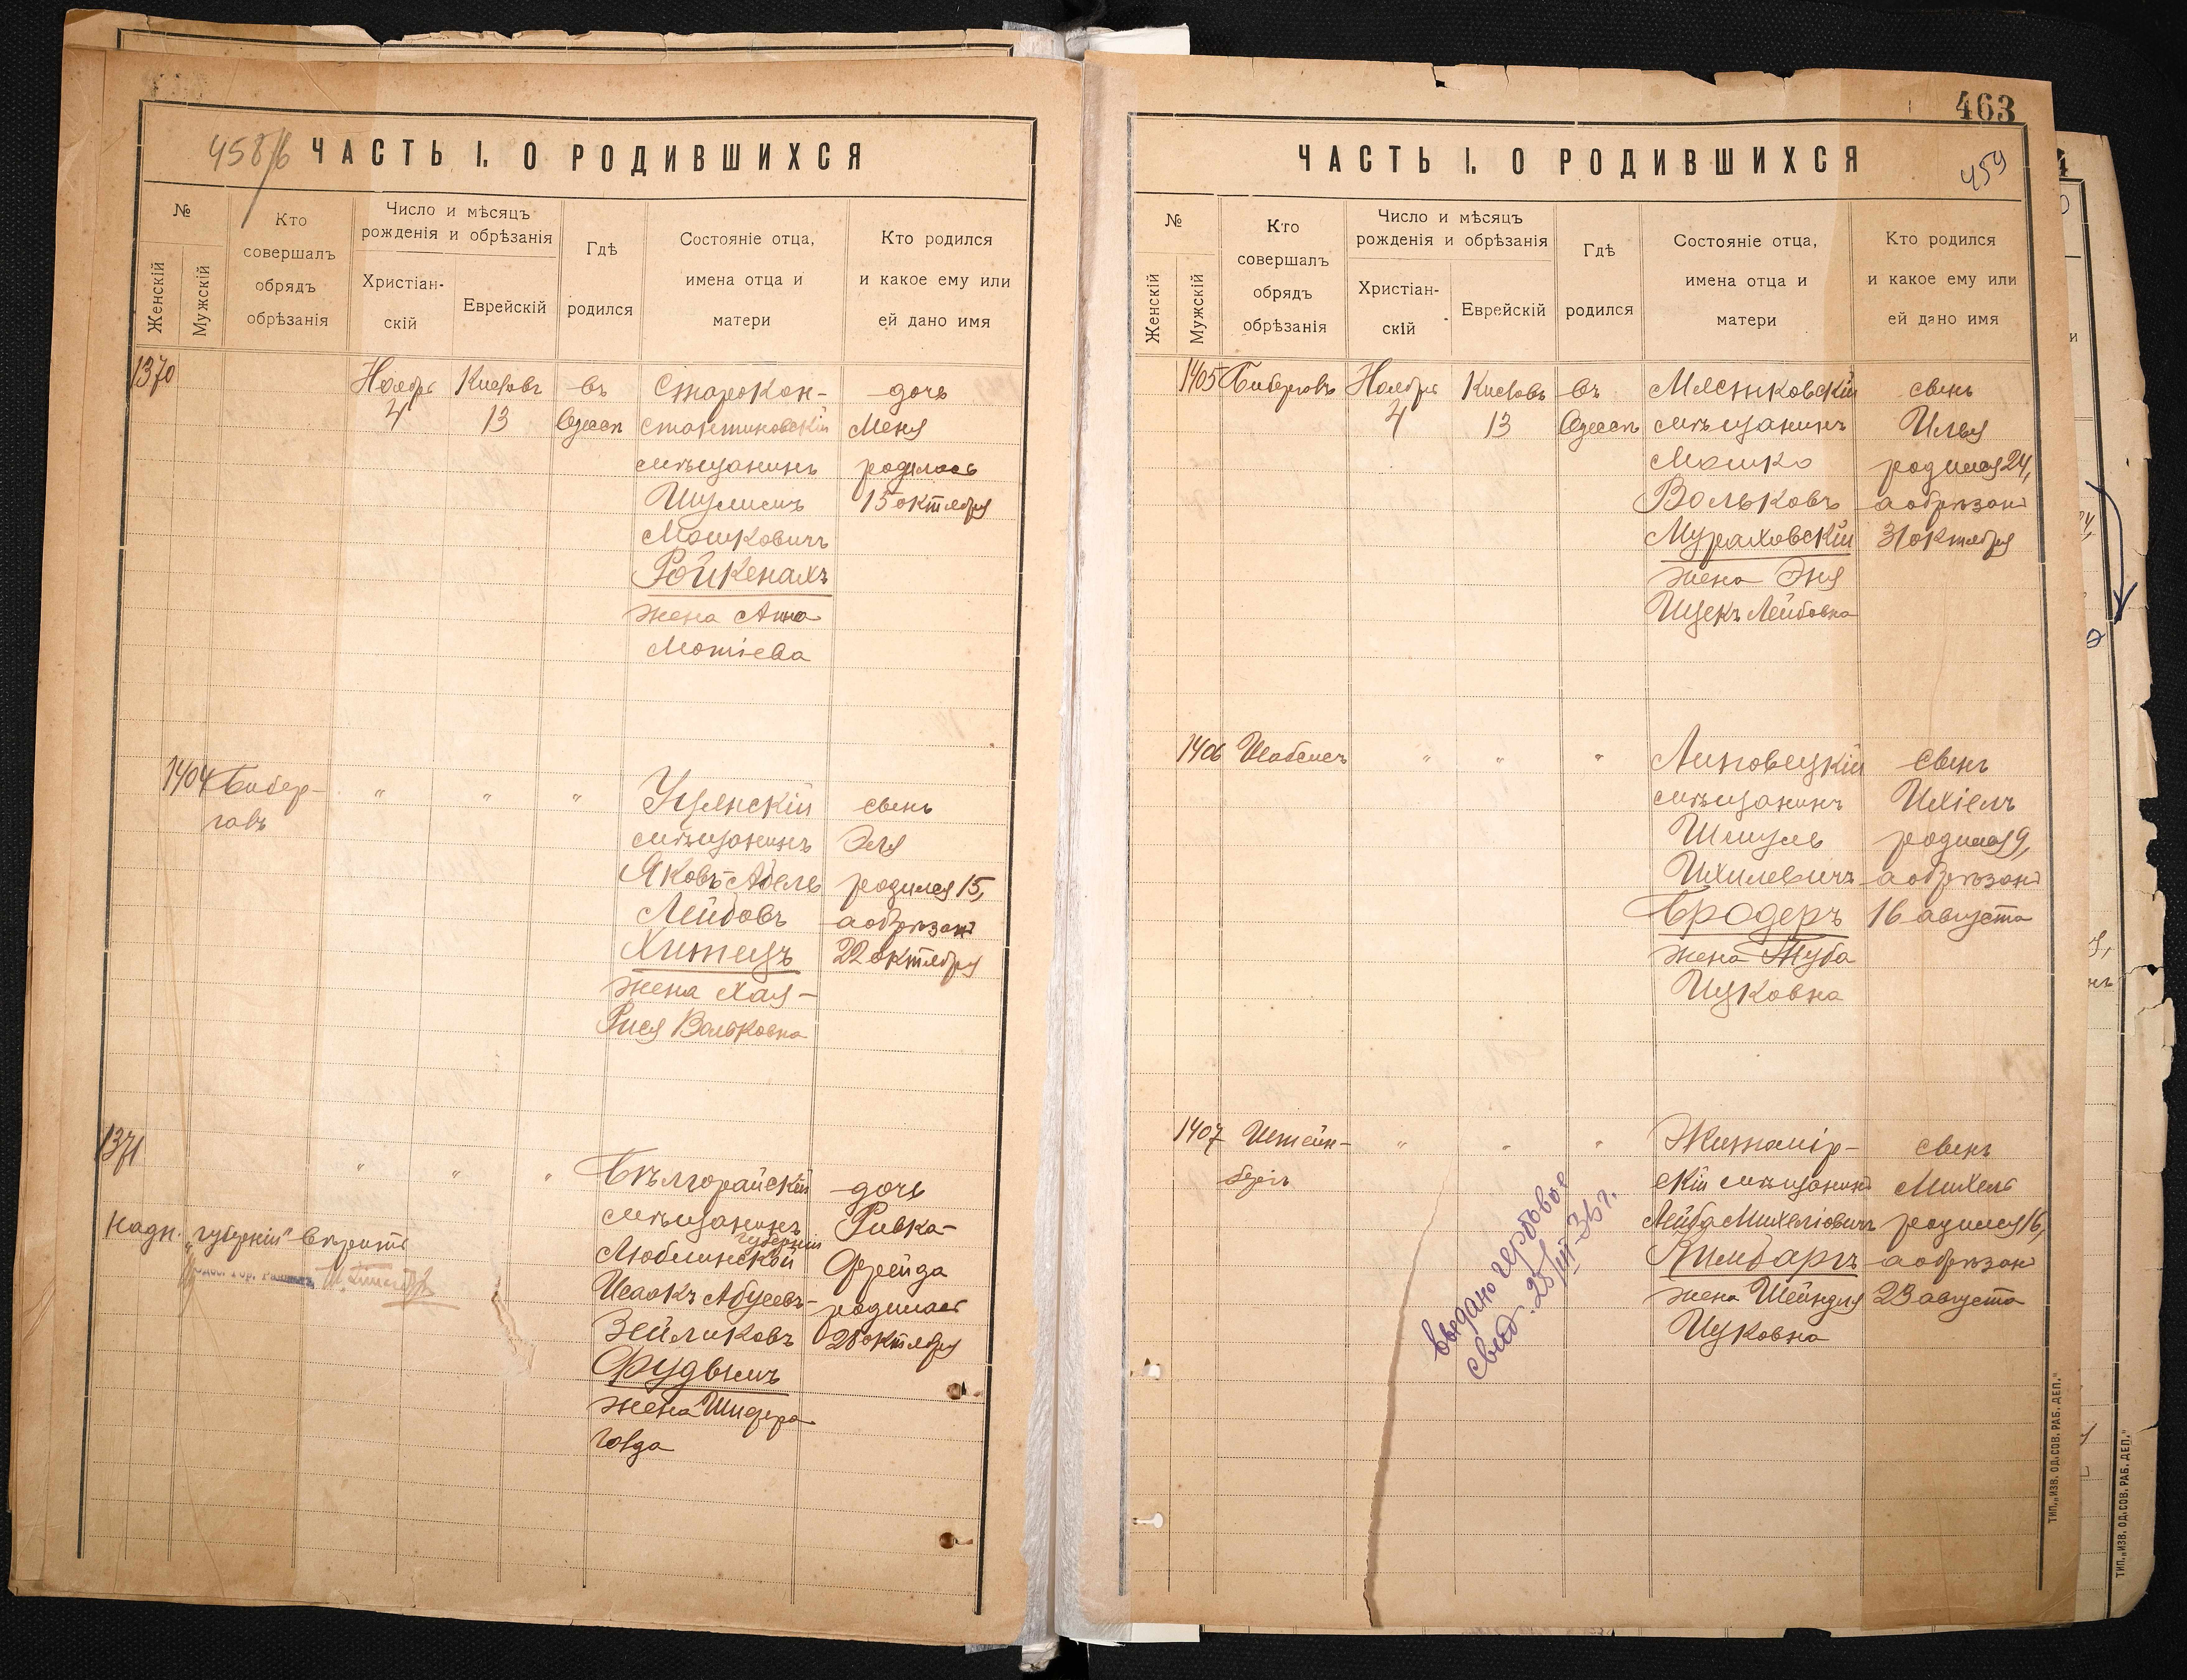 458/б
ЧАСТЬ I. О РОДИВШИХСЯ
№
Женскій
Мужскій
Кто совершалъ обрядъ обрѣзанія
Число и мѣсяцъ рожденія и обрѣзанія
Христіан-
скій
Еврейскій
Гдѣ родился
Состояніе отца, имена отца и матери
Кто родился и какое ему или ей дано имя
1370
Ноябрь 4
Кислевъ 13
въ Одессѣ
Старокон-
стантиновскій
мѣщанинъ
Мошковичъ
Ройкенахъ
жена Анна
дочь
Меня
родилась
15 октября
1404
Бибер-
галъ
" " "
мѣщанинъ
Яковъ-Абель
Лейбовъ
Хитецъ
жена Хая-
Рися Вольковна
сынъ
Эля
родился 15,
а обрѣзанъ
22 октября
1371
" " "
Бѣлгорайскій
мѣщанинъ
Люблинской
губерніи
Исаакъ
Зейликовъ
Фудымъ
жена Шифра
Голда
дочь
Ривка-
Фрейда
родилась
28 октября
Надп. "губерніи" вѣрить
ЧАСТЬ I. О РОДИВШИХСЯ
463
459
№
Женскій
Мужскій
Кто совершалъ обрядъ обрѣзанія
Число и мѣсяцъ рожденія и обрѣзанія
Христіан-
скій
Еврейскій
Гдѣ родился
Состояніе отца, имена отца и матери
Кто родился и какое ему или ей дано имя
1405
Ноября 4
Кислевъ 13
въ Одессѣ
Мястковскій
мѣщанинъ
Мошко
Вольковъ
Мураховскій
жена Эня
Лейбовна
сынъ
Илья
родился 24,
а обрѣзанъ
31 октября
1406
" " "
Липовецкій
мѣщанинъ
Шмуль
Ихилевичъ
Бродеръ
жена Туба
Ицковна
сынъ
Ихіелъ
родился 9,
а обрѣзанъ
16 августа
1407
Штейн-
бергъ
" " "
Житомір-
скій мѣщанинъ
Лейба Михеліовичъ
Кимбаргъ
жена Шейндля
Ицковна
сынъ
Михель
родился 16,
а обрѣзанъ
23 августа
выдано гербовое
свид. 28/III-36 г.
ТИП. „ИЗВ. ОД. СОВ. РАБ. ДЕП.“
ТИП. „ИЗВ. ОД. СОВ. РАБ. ДЕП.“